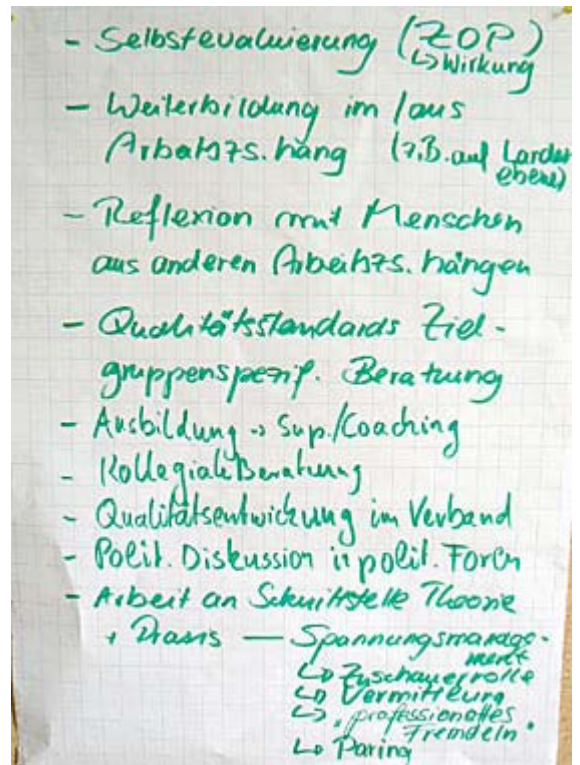 - Selbstevaluierung (ZOP)
↳ Wirkung
- Weiterbildung im/aus
Arbeitszs.hang (z.B. auf Länder
ebene)
- Reflexion mit Menschen
aus anderen Arbeitszs.hängen
- Qualitätsstandards Ziel-
gruppenspezif. Beratung
- Ausbildung → Sup./Coaching
- Kollegiale Beratung
- Qualitätsentwicklung im Verband
- Polit. Diskussion in polit. Foren
- Arbeit an Schnittstelle Theorie
+ Praxis — Spannungsmanage-
ment
↳ Zuschauerrolle
↳ Vermittlung
↳ "professionelles
Fremdeln"
↳ Paring